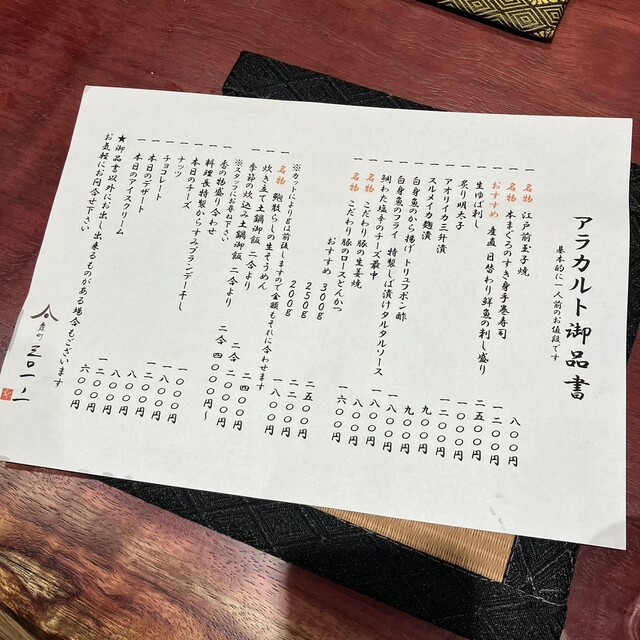 アラカルト御品書
基本的に一人前のお値段です
一 名物 江戸前玉子焼 八〇〇円
一 名物 本まぐろのすき身手巻寿司 一二〇〇円
一 おすすめ 産直 日替わり鮮魚の刺し盛り 二五〇〇円
一 生ゆば刺し 一〇〇〇円
一 炙り明太子 一二〇〇円
一 アオリイカ三升漬 九〇〇円
一 スルメイカ麹漬 九〇〇円
一 白身魚のから揚げ トリュフポン酢 一八〇〇円
一 白身魚のフライ 特製しば漬けタルタルソース 一八〇〇円
一 鯛わた塩辛のチーズ最中 八〇〇円
一 名物 こだわり豚の生姜焼 一八〇〇円
一 名物 こだわり豚のロースとんかつ 一六〇〇円
おすすめ 300g
250g 二五〇〇円
200g 二二〇〇円
※カットによりgは前後しますので金額もそれに合わせます
一 名物 鮑散らしの生そうめん 一八〇〇円
一 炊き立て土鍋御飯 二合より 二四〇〇円
一 季節の炊込み土鍋御飯 二合より 二合 四〇〇〇円〜
※スタッフにお尋ね下さい
一 香の物盛り合わせ
一 料理長特製からすみブランデー干し
一 本日のチーズ
一 ナッツ
一 チョコレート
一 本日のデザート
一 本日のアイスクリーム 六〇〇円
★御品書以外にお出し出来るものがある場合もございます
お気軽にお問合せ下さい